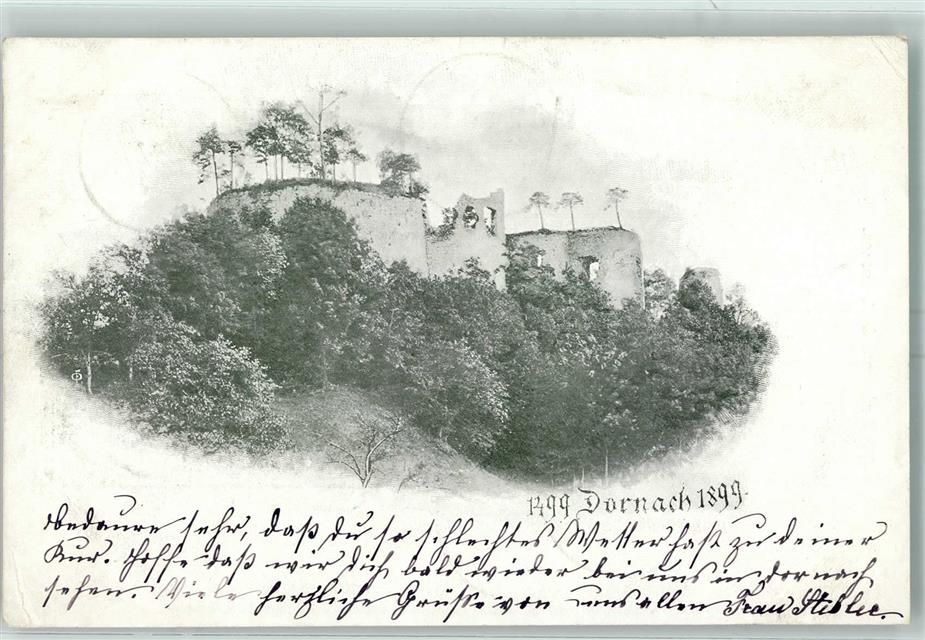 1499 Dornach 1899.
bedaure sehr, daß du so schlechtes Wetter hast zu deiner
Kur. Hoffe daß wir dich bald wieder bei uns in Dornach
sehen. Viele herzliche Grüsse von uns allen Frau